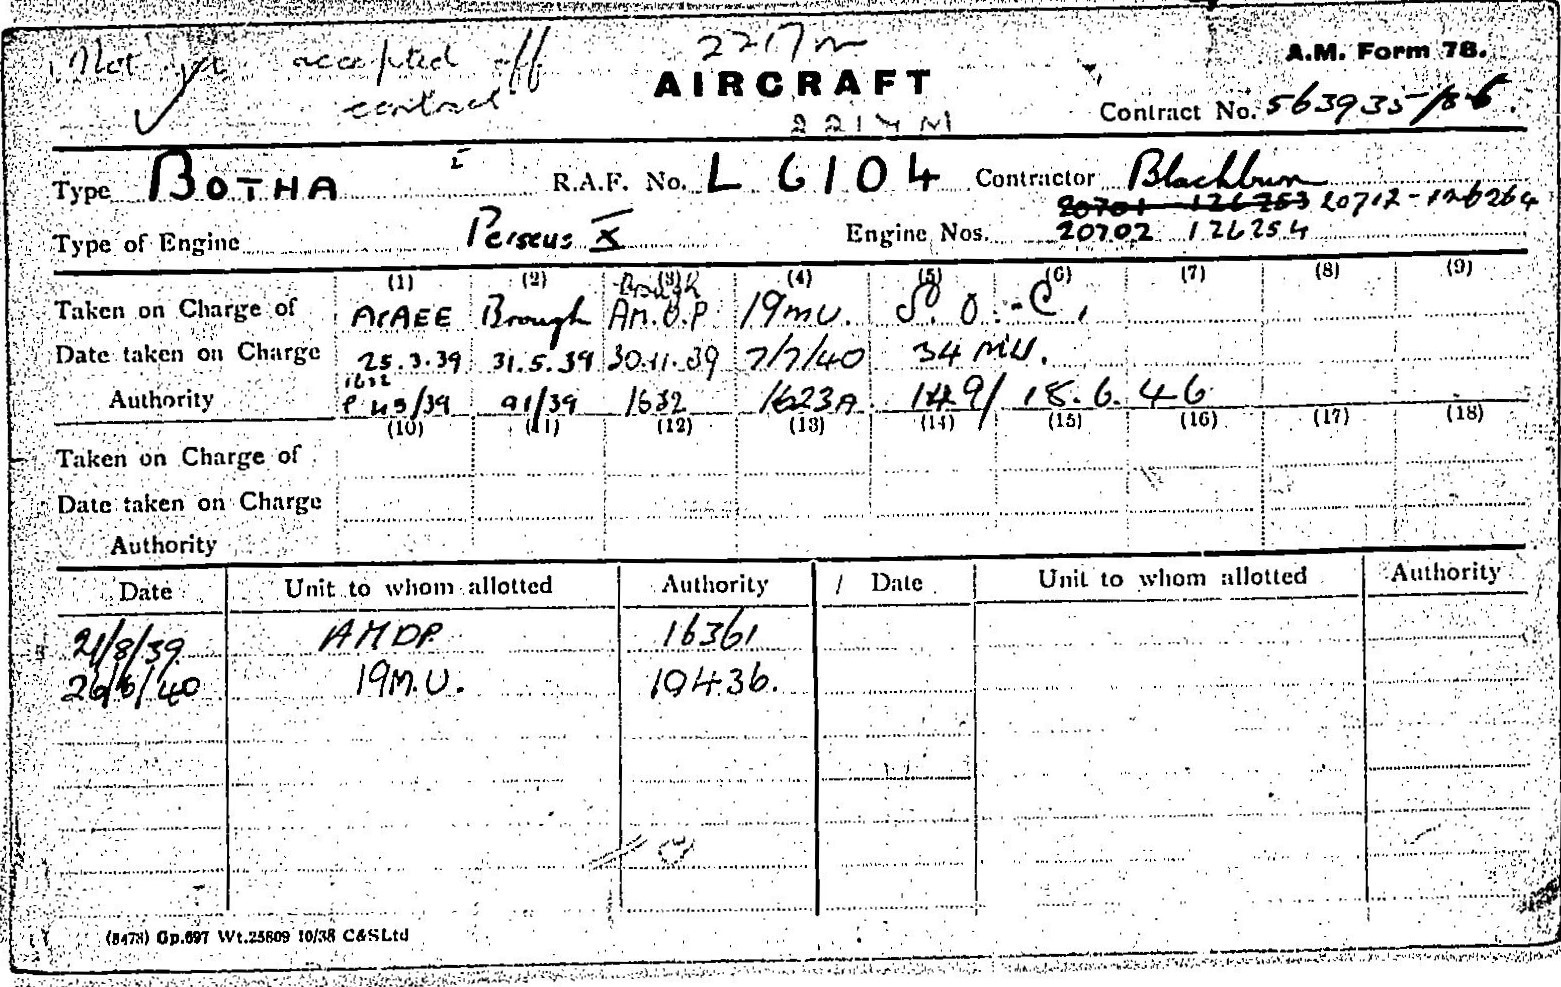 Not yet accepted off 2217m
contract
A.M. Form 78.
AIRCRAFT
Contract No. 563935/36.
2217M
Type BOTHA I R.A.F. No. L 6104 Contractor Blackburn
20701 126253 20712 - 126264
Type of Engine Perseus X Engine Nos. 20702 126254
(1) (2) (3) (4) (5) (6) (7) (8) (9)
Brough
Taken on Charge of A&AEE Brough AM.D.P 19MU. S.O.-C.
Date taken on Charge 25.3.39 31.5.39 30.11.39 7/7/40 34 MU.
1632
Authority P 43/39 91/39 1632 1623A 149/ 18.6.46
(10) (11) (12) (13) (14) (15) (16) (17) (18)
Taken on Charge of
Date taken on Charge
Authority
Date Unit to whom allotted Authority Date Unit to whom allotted Authority
21/8/39 AMDP 16361
26/6/40 19M.U. 19436.
(8473) Gp.697 Wt.25809 10/38 C&SLtd